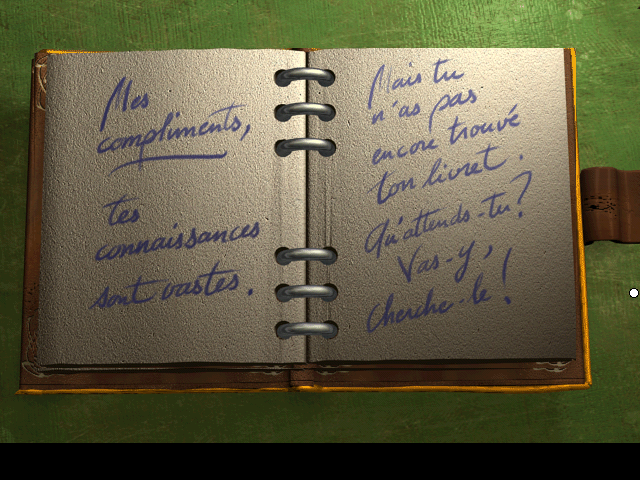 Mes
compliments,
tes
connaissances
sont vastes.
Mais tu
n'as pas
encore trouvé
ton livret.
Qu'attends-tu?
Vas-y,
cherche-le!